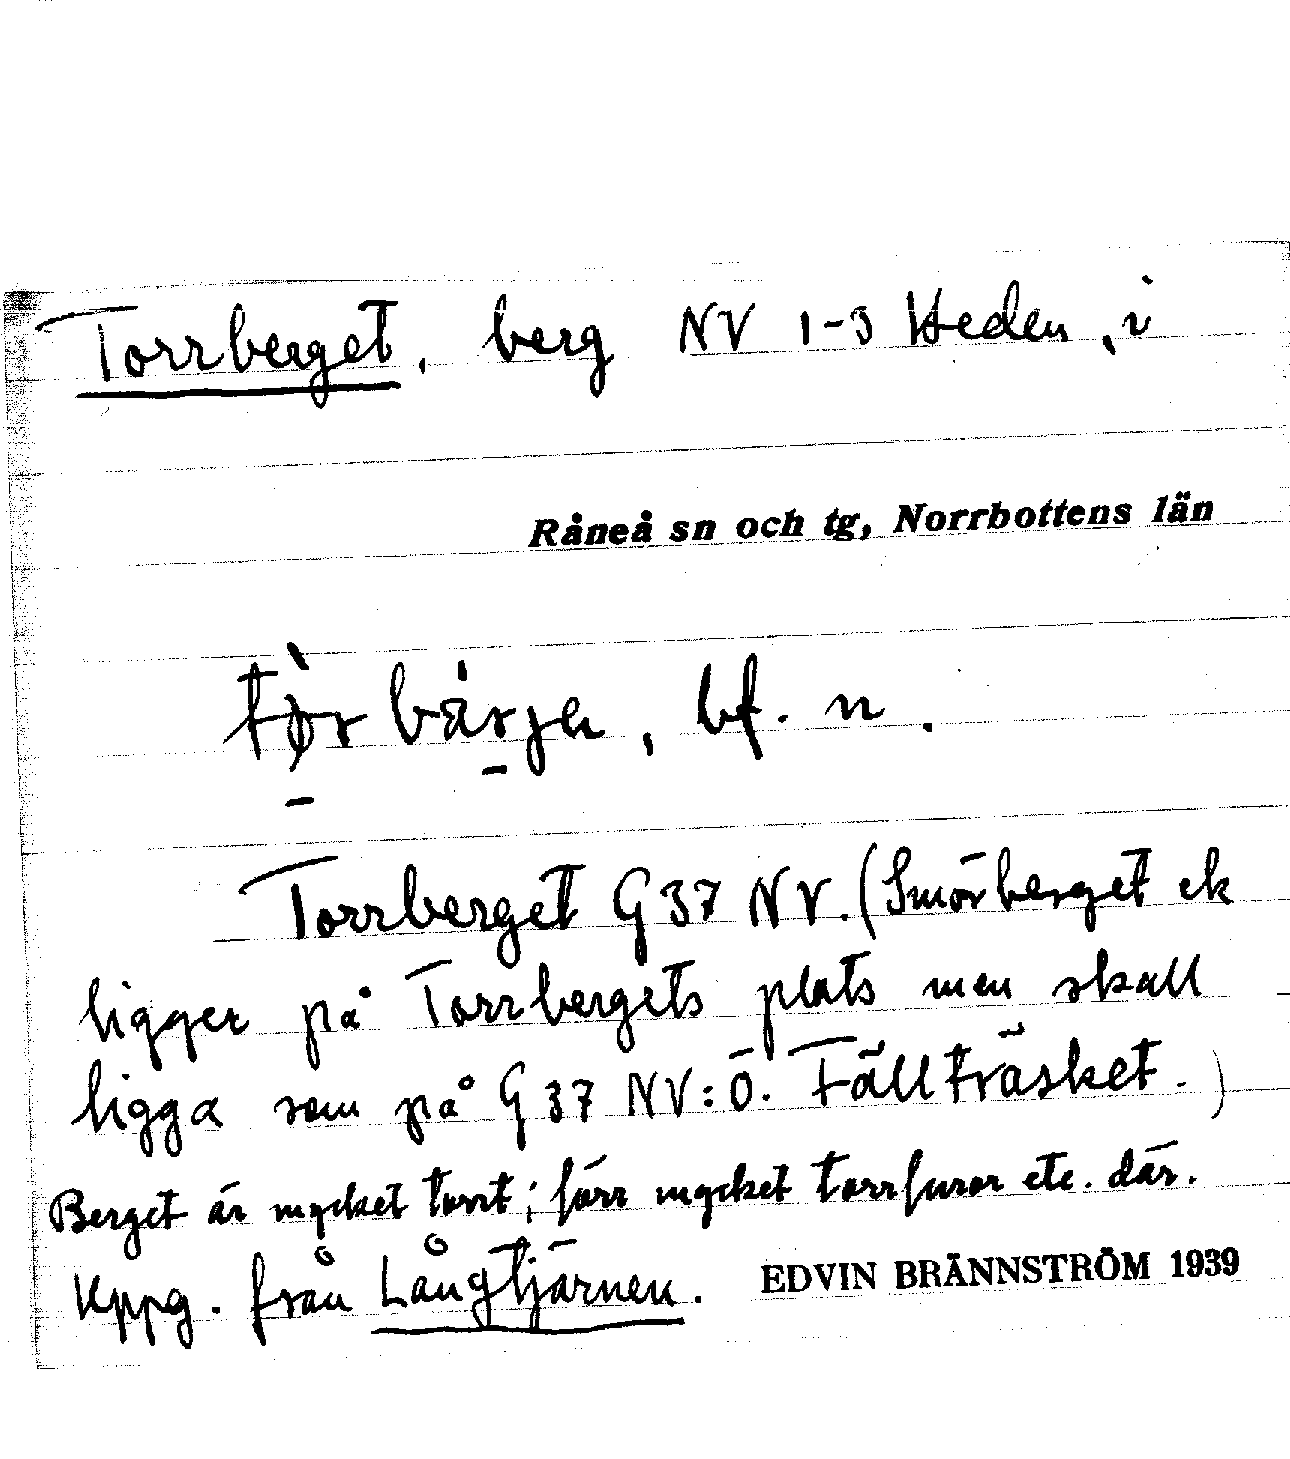 Torrberget, berg NV 1-3 Heden, i
Råneå sn och tg, Norrbottens län
bf. n.
Torrberget G 37 NV. (Smörberget ek
ligger på Torrbergets plats men skall
ligga som på G 37 NV: Ö. Fällträsket.)
Berget är mycket torrt; förr mycket torrfuror etc. där.
Kppg. från Långtjärnen.
EDVIN BRÄNNSTRÖM 1939